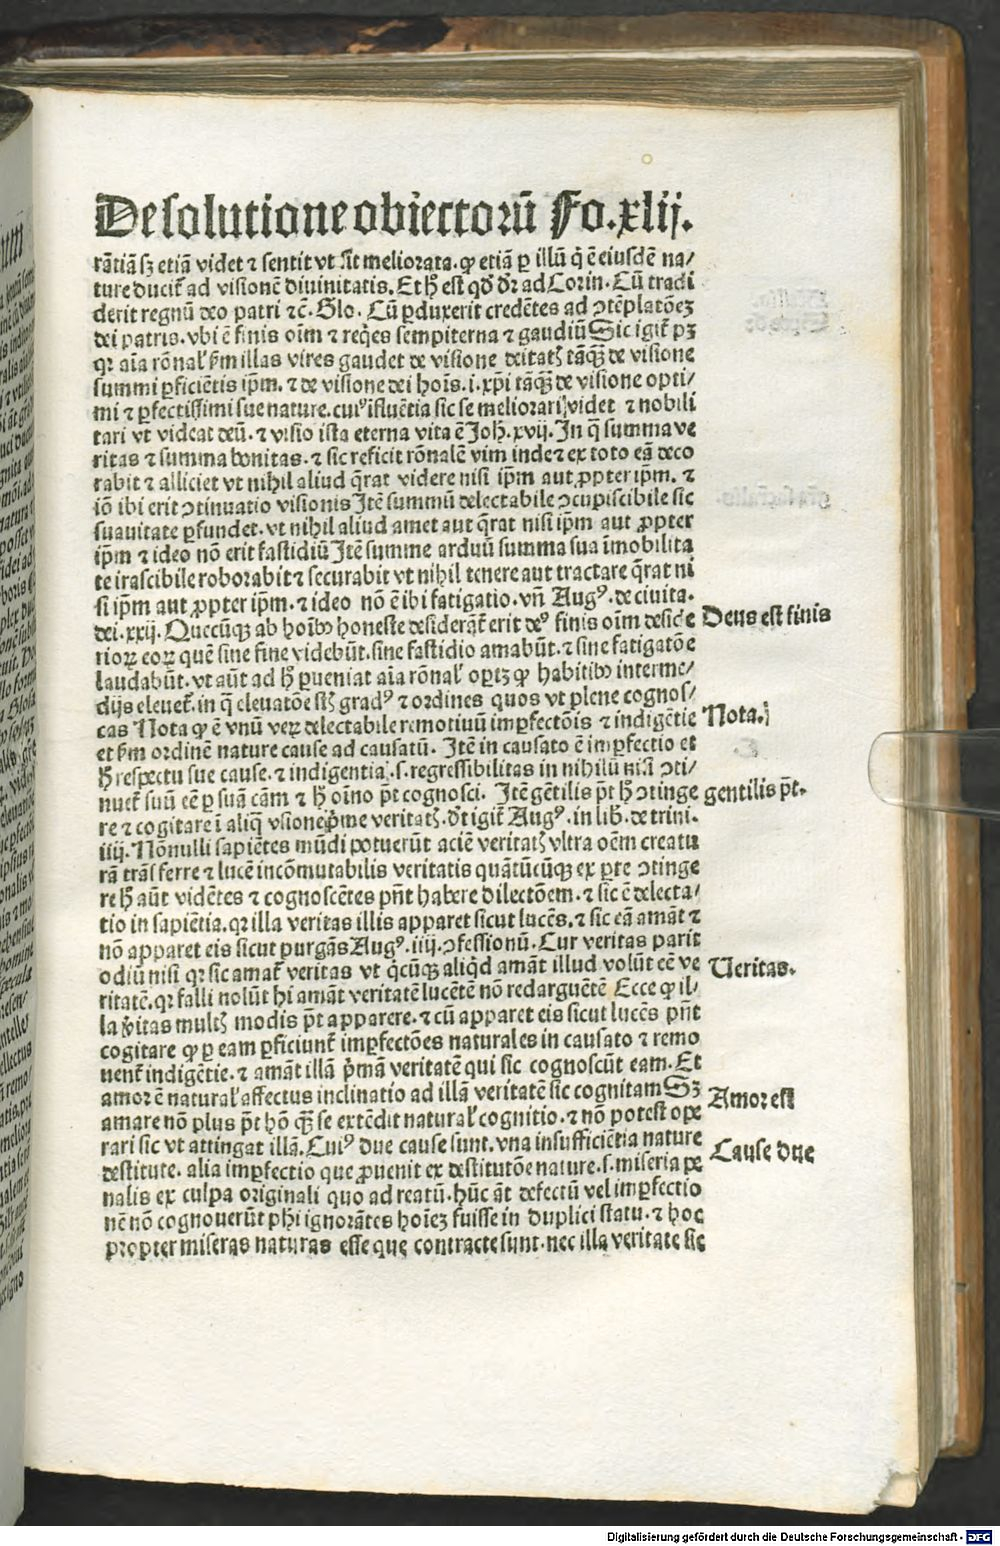 De solutione obiectorū Fo.xlij.
rātiā sꝫ etiā videt ⁊ sentit vt sit meliorata. ꝙ etiā ꝑ illū q̄ ē eiusdē na/
ture ducit᷑ ad visionē diuinitatis. Et ħ est qd̄ dr̄ ad Corin. Cū tradi
derit regnū deo patri ⁊c̄. Glo. Cū ꝑduxerit credētes ad ↄtēplatōeꝫ
dei patris. vbi ē finis oīm ⁊ reqͥes sempiterna ⁊ gaudiū Sic igit᷑ pꝫ
qꝛ aīa rōnal᷑ ẜm illas vires gaudet de visione deitatꝭ tāqꝫ̄ de visione
summi ꝑficiētis ip̄m. ⁊ de visione dei hoīs. i. xp̄i tāqꝫ̄ de visione opti/
mi ⁊ ꝑfectissimi sue nature. cuiꝰ īfluētia sic se meliorari videt ⁊ nobili
tari vt videat deū. ⁊ visio ista eterna vita ē Joħ. xvij. In q̄ summa ve
ritas ⁊ summa bonitas. ⁊ sic reficit rōnalē vim inde ⁊ ex toto eā deco
rabit ⁊ alliciet vt nihil aliud q̄rat videre nisi ip̄m aut ꝓpter ip̄m. ⁊
iō ibi erit ↄtinuatio visionis Itē summū delectabile ↄcupiscibile sic
suauitate ꝑfundet. vt nihil aliud amet aut q̄rat nisi ip̄m aut ꝓpter
ip̄m ⁊ ideo nō erit fastidiū Itē summe arduū summa sua īmobilita
te irascibile roborabit ⁊ securabit vt nihil tenere aut tractare q̄rat ni
si ip̄m aut ꝓpter ip̄m. ⁊ ideo nō ē ibi fatigatio. vn̄ Augꝰ. de ciuita.
dei. xxij. Quecūqꝫ ab hoībꝰ honeste desiderāt᷑ erit deꝰ finis oīm deside
rioꝝ eoꝝ quē sine fine videbūt. sine fastidio amabūt. ⁊ sine fatigatōe
laudabūt. vt aūt ad ħ ꝑueniat aīa rōnal᷑ oportꝫ ꝙ habitibꝰ interme/
dijs eleuet᷑. in q̄ eleuatōe st̄ gradꝰ ⁊ ordines quos vt plene cognos/
cas Nota ꝙ ē vnū veꝝ delectabile remotiuū imꝑfectōis ⁊ indigētie
et ẜm ordinē nature cause ad causatū. Itē in causato ē imꝑfectio et
ħ respectu sue cause. ⁊ indigentia. s. regressibilitas in nihilū nisi ↄti/
nuet᷑ suū eē ꝑ suā cām ⁊ ħ oīno pt̄ cognosci. Itē gētilis pt̄ ħ ↄtinge
re ⁊ cogitare ī aliq̄ vsione p̄me veritatꝭ. dt̄ igit᷑ Augꝰ. in lib. de trini.
iiij. Nōnulli sapiētes mūdi potuerūt aciē veritatꝭ vltra oēm creatu
rā trāsferre ⁊ lucē incōmutabilis veritatis quātūcūqꝫ ex ꝑte ↄtinge
re ħ aūt vidētes ⁊ cognoscētes pn̄t habere dilectōem. ⁊ sic ē delecta/
tio in sapiētia. qꝛ illa veritas illis apparet sicut lucēs. ⁊ sic eā amāt ⁊
nō apparet eis sicut purgās Augꝰ. iiij. ↄfessionū. Cur veritas parit
odiū nisi qꝛ sic amat᷑ veritas vt qͥcūqꝫ aliqͥd amāt illud volūt eē ve
ritatē. qꝛ falli nolūt hi amāt veritatē lucētē nō redarguētē Ecce ꝙ il/
la v̓itas multꝭ modis pt̄ apparere. ⁊ cū apparet eis sicut lucēs pn̄t
cogitare ꝙ ꝑ eam ꝑficiunt᷑ imꝑfectōes naturales in causato ⁊ remo
uent᷑ indigētie. ⁊ amāt illā p̄mā veritatē qui sic cognoscūt eam. Et
amor ē natural᷑ affectus inclinatio ad illā veritatē sic cognitam Sꝫ
amare nō plus pt̄ hō qꝫ̄ se extēdit natural᷑ cognitio. ⁊ nō potest ope
rari sic vt attingat illā. Cuiꝰ due cause sunt. vna insufficiētia nature
destitute. alia imꝑfectio que ꝓuenit ex destitutōe nature. s. miseria pe
nalis ex culpa originali quo ad reatū. hūc āt defectū vel imꝑfectio
nē nō cognouerūt phi ignorātes hoīeꝫ fuisse in duplici statu. ⁊ hoc
propter miseras naturas esse que contracte sunt. nec illa veritate sic
Deus est finis
Nota.
gentilis pt̄.
Veritas.
Amor est
Cause due
Digitalisierung gefördert durch die Deutsche Forschungsgemeinschaft - DFG